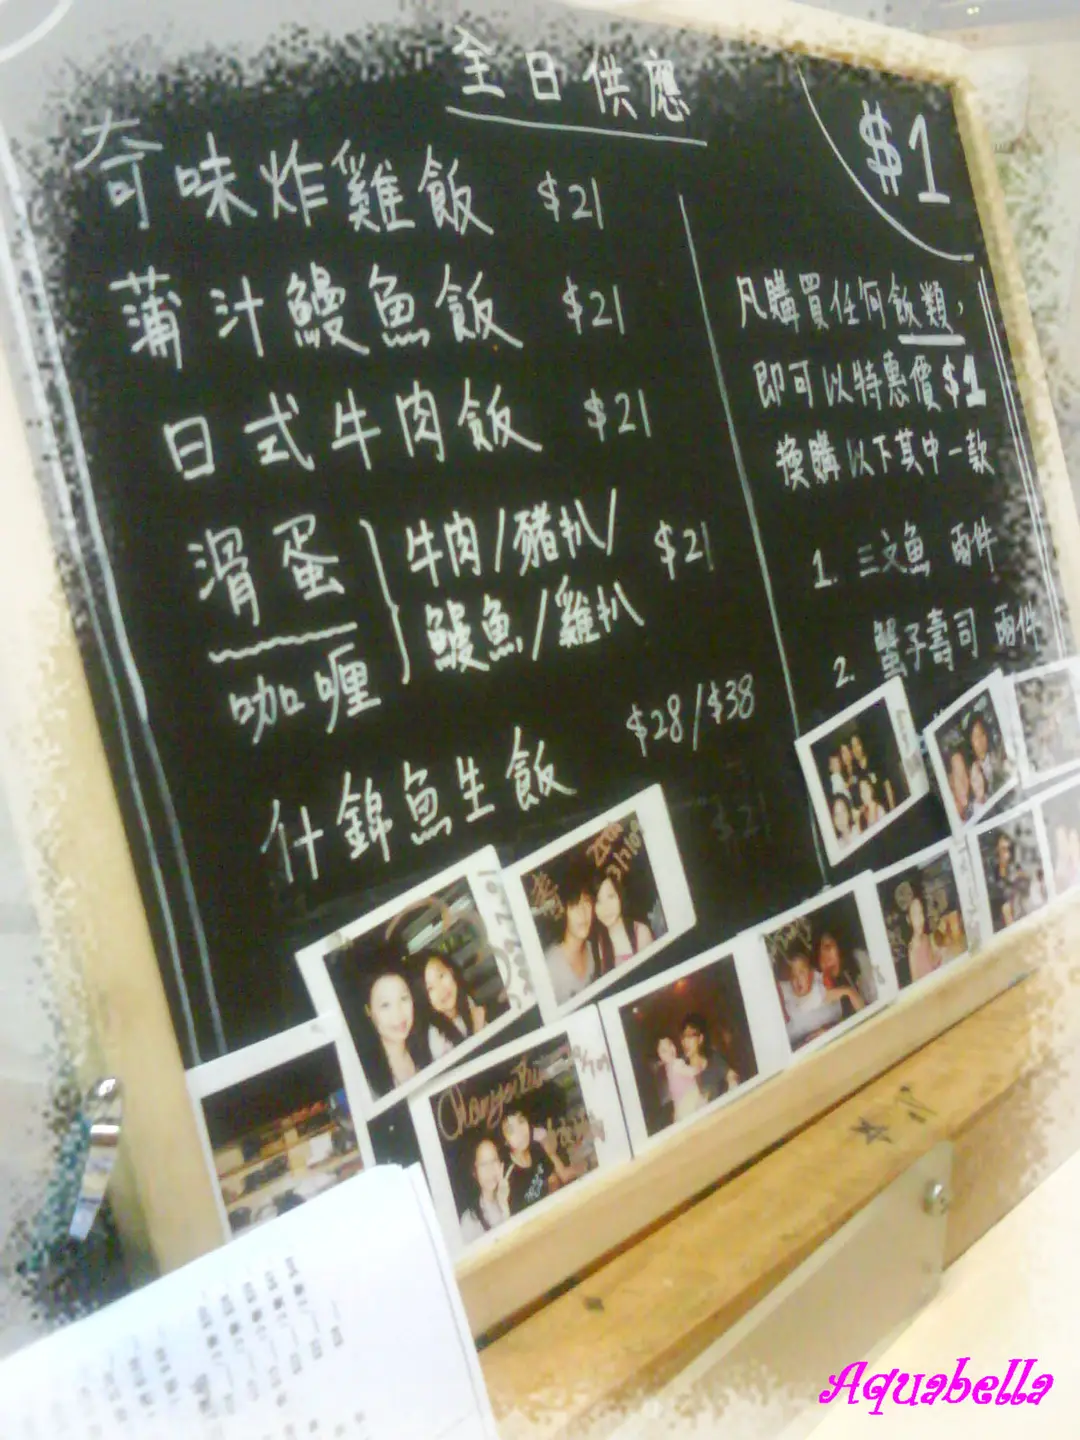 全日供應
奇味炸雞飯 $21
蒲汁鰻魚飯 $21
日式牛肉飯 $21
滑蛋
咖喱
牛肉/豬扒/
鰻魚/雞扒
$21
什錦魚生飯 $28/$38
$21
$1
凡購買任何飯類,
即可以特惠價$1
換購以下其中一款
1. 三文魚 兩件
2. 蟹子壽司 兩件
3/7/09
Aquabella